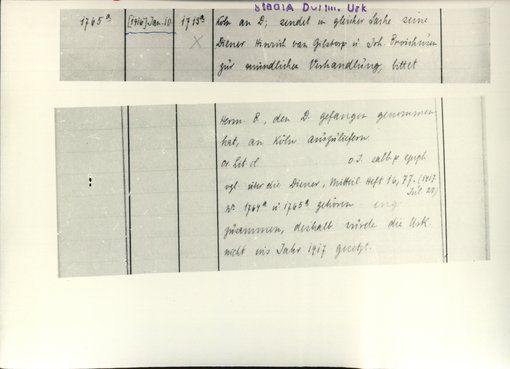 StadtA Dortm. Urk
1765a [1416] Jan. 10 1713a Köln an D; sendet in gleicher Sache seine
Diener Hinrich van Gilstorp u Joh.
zur mündlichen Verhandlung, bittet
Herm B., den D. gefangen genommen
hat, an Köln auszuliefern.
Or. Lit cl o. J. salb p epiph
vgl. über die Diener, Mitteil. Heft 16, 77. (1417
Jul. 28)
Nr. 1764a u 1765a gehören eng
zusammen, deshalb würde die Urk.
nicht ins Jahr 1417 gesetzt.